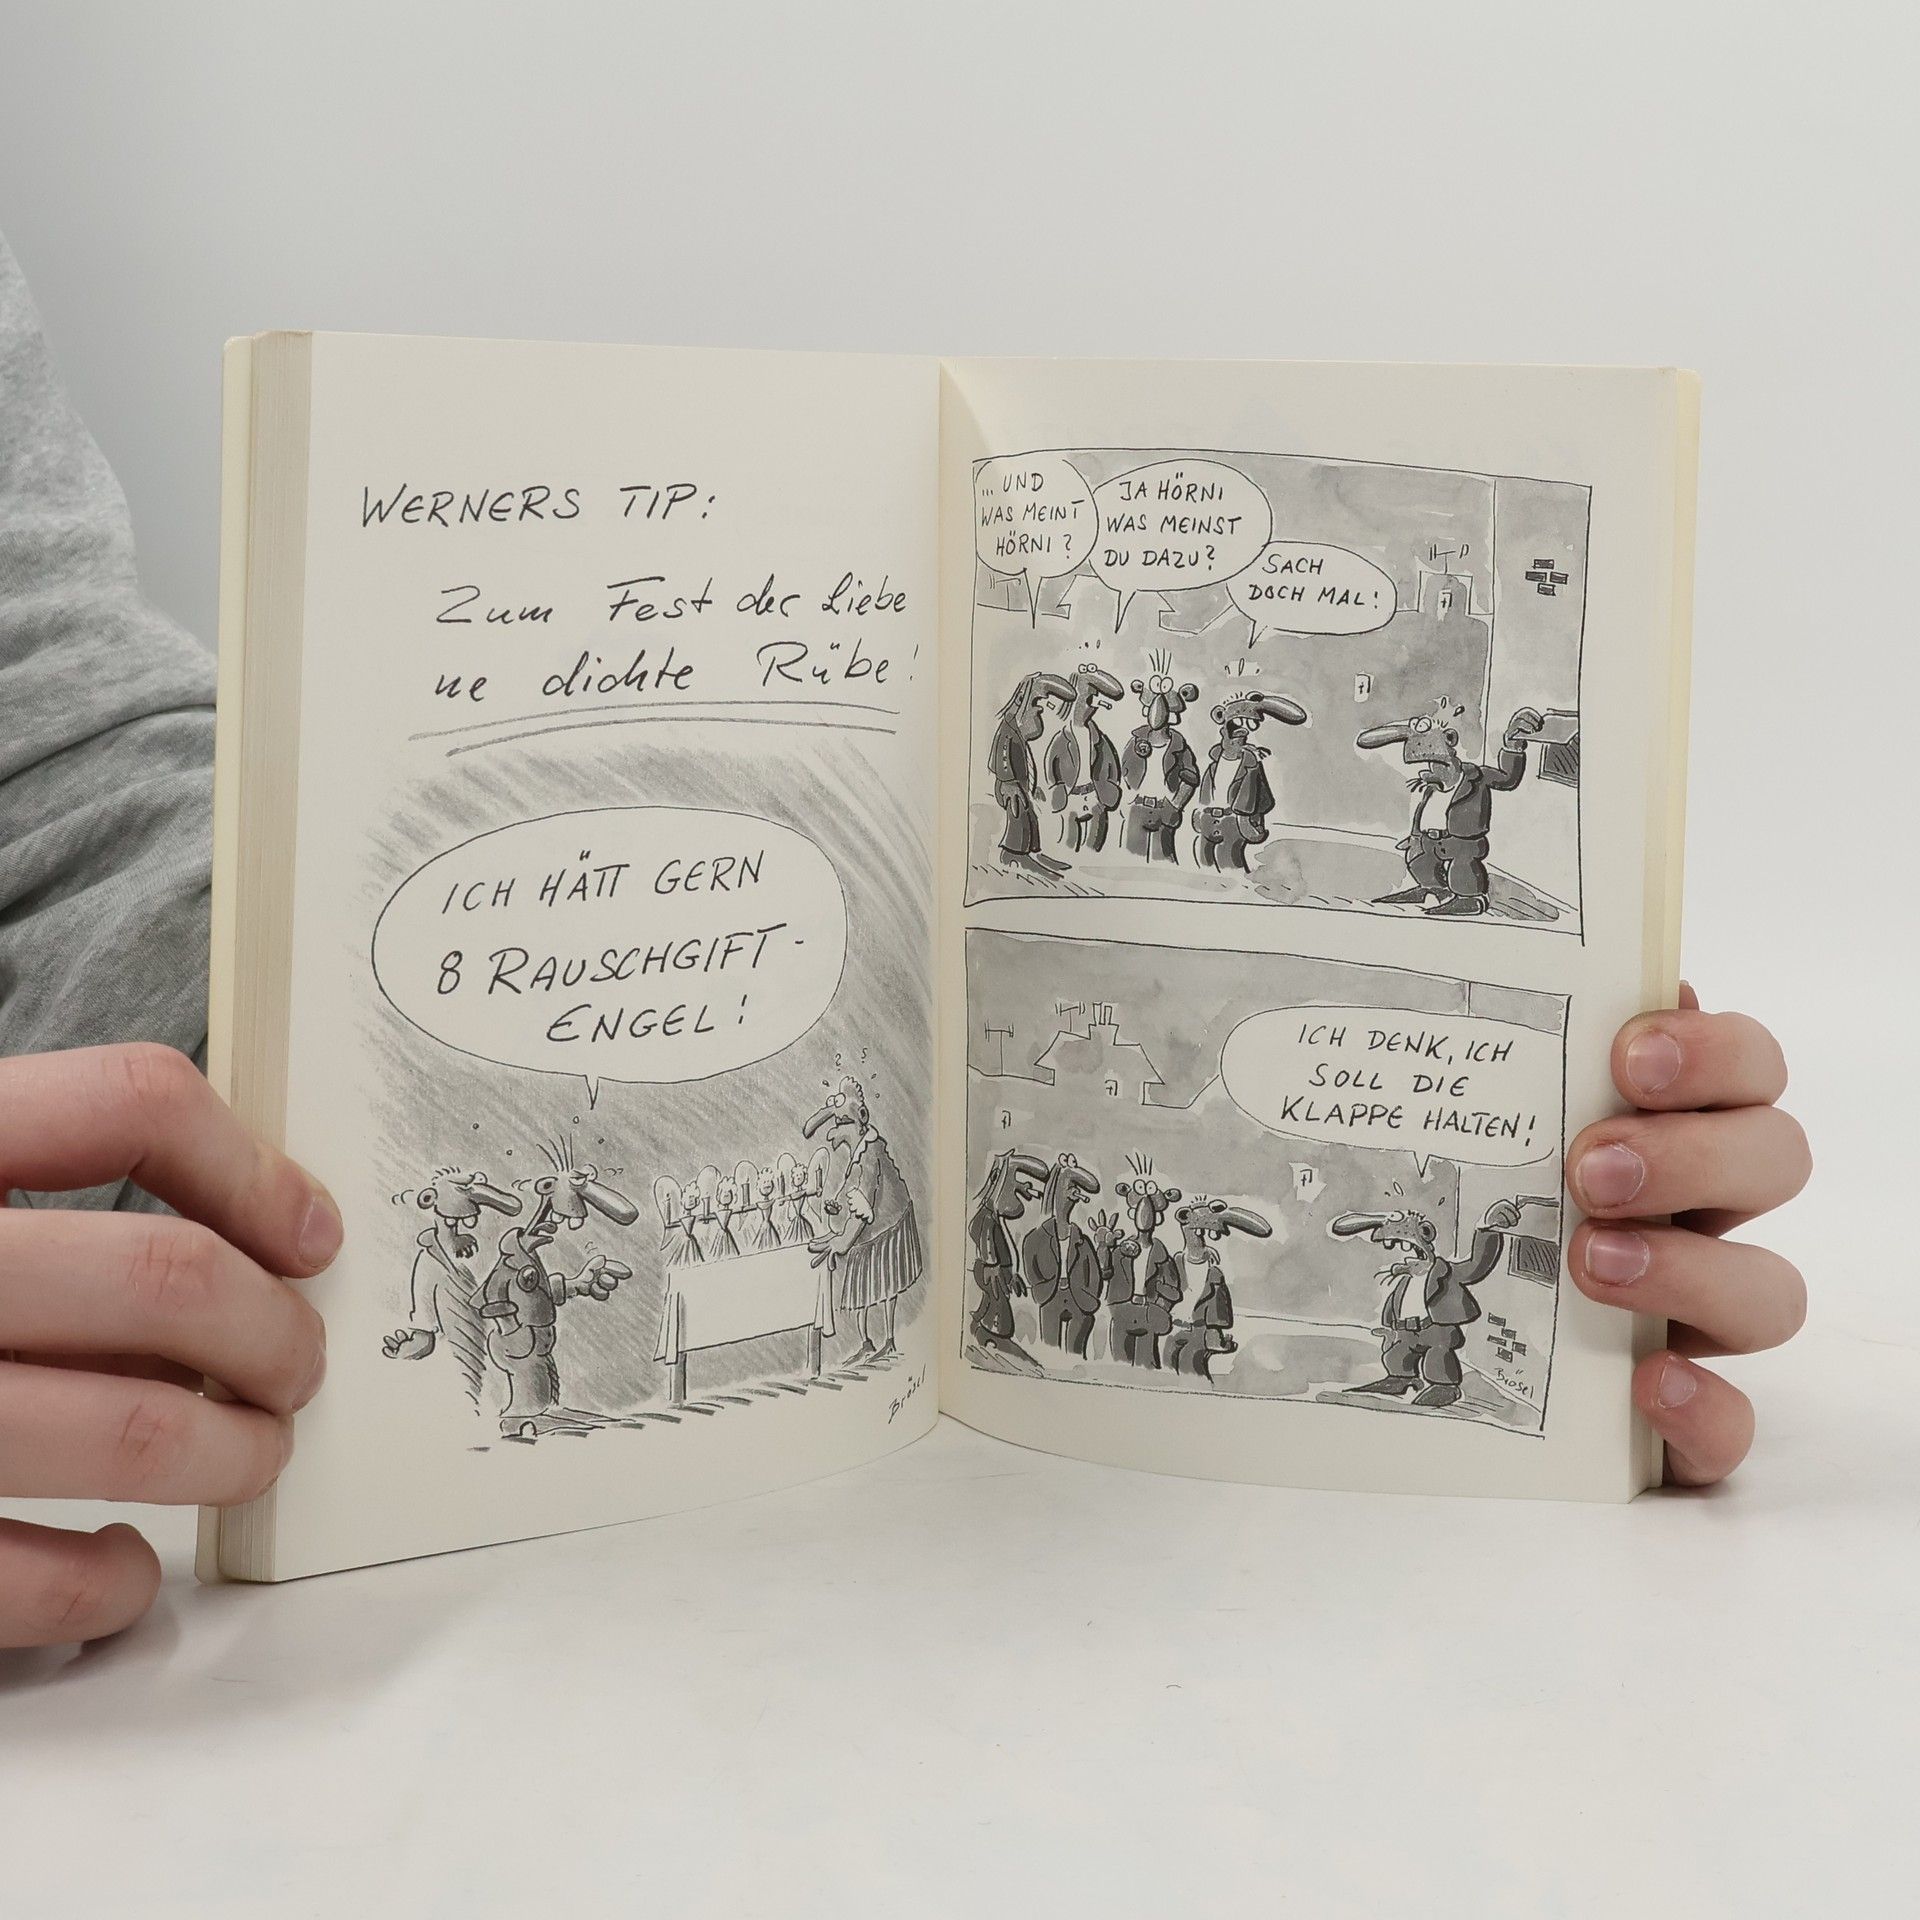 WERNERS TIP:
Zum Fest der Liebe
ne dichte Rübe!
ICH HÄTT GERN
8 RAUSCHGIFT-
ENGEL!
Brösel
... UND
WAS MEINT
HÖRNI?
JA HÖRNI
WAS MEINST
DU DAZU?
SACH
DOCH MAL!
ICH DENK, ICH
SOLL DIE
KLAPPE HALTEN!
Brösel